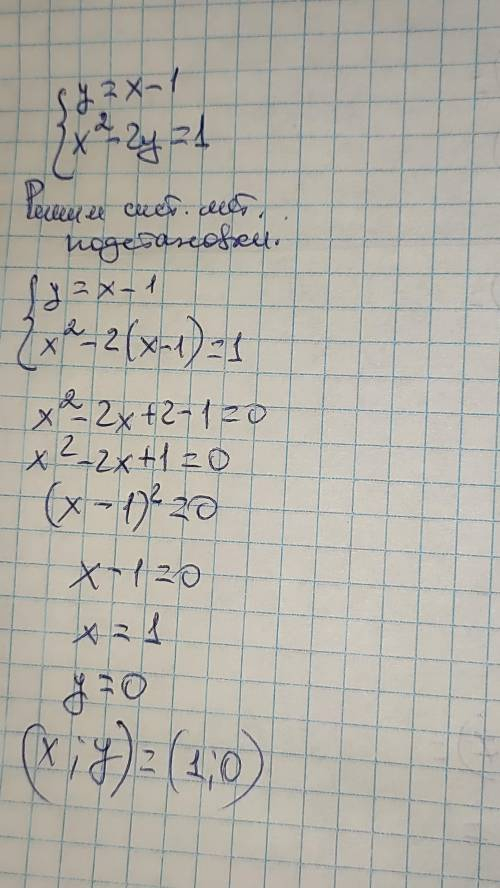 y = x - 1
x² - 2y = 1
Решим сист. мет.
подстановки.
y = x - 1
x² - 2(x-1) = 1
x² - 2x + 2 - 1 = 0
x² - 2x + 1 = 0
(x - 1)² = 0
x - 1 = 0
x = 1
y = 0
(x; y) = (1; 0)